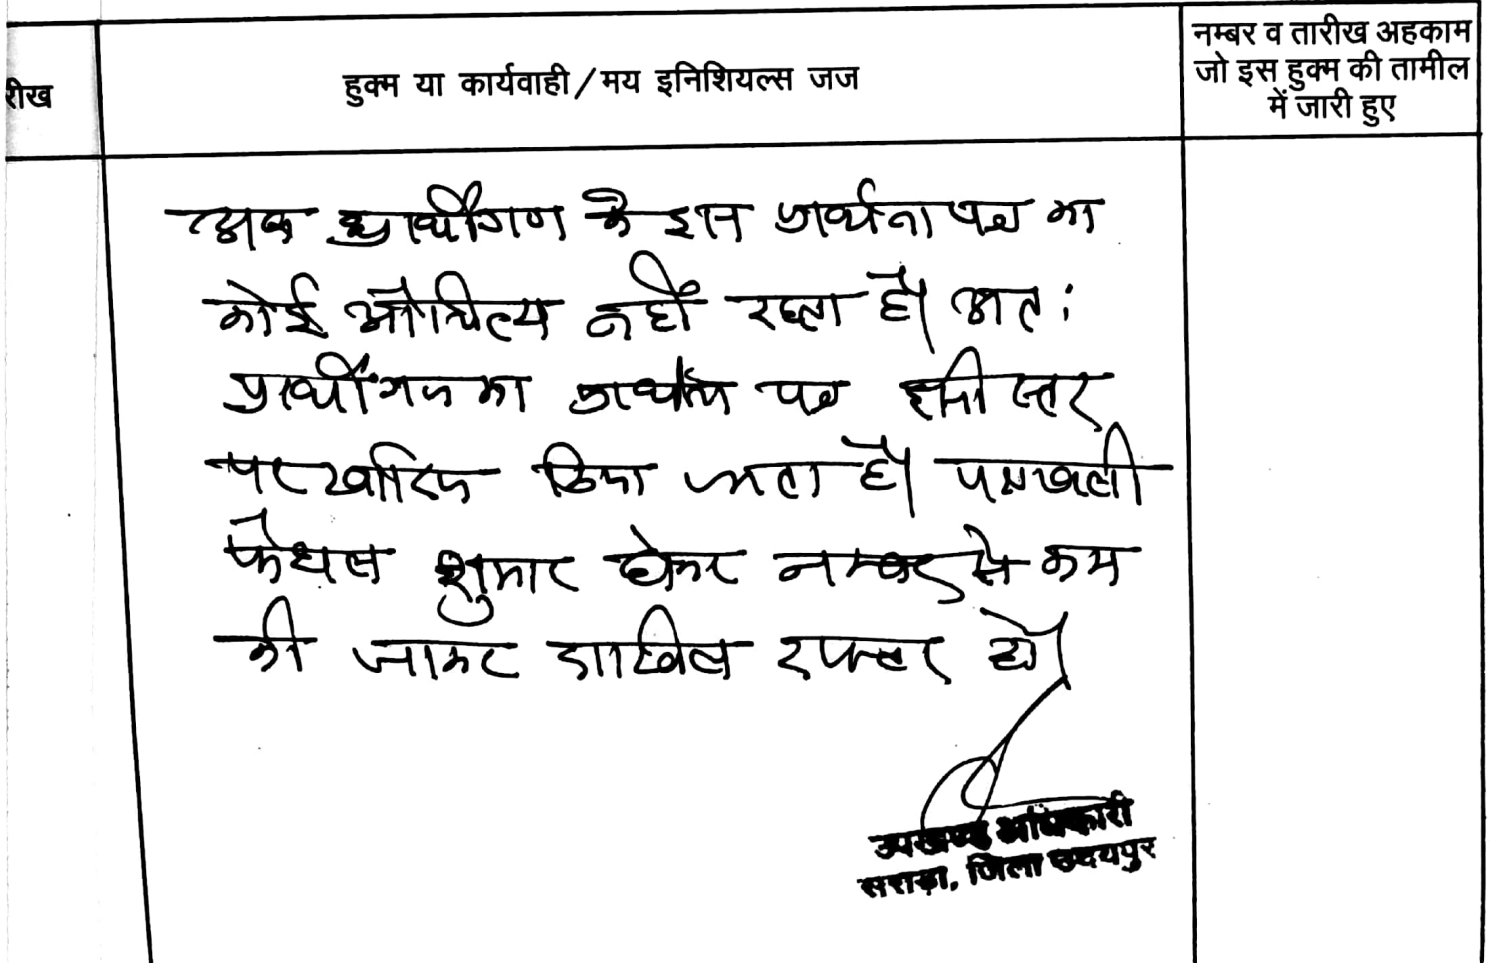 रीख
हुक्म या कार्यवाही/मय इनिशियल्स जज
नम्बर व तारीख अहकाम
जो इस हुक्म की तामील
में जारी हुए
अब प्रार्थीगण के इस प्रार्थना पत्र का
कोई औचित्य नहीं रहता है। अतः
प्रार्थीगण का प्रार्थना पत्र इसी स्तर
पर खारिज किया जाता है। पत्रावली
फैसल शुमार होकर नम्बर से कम
की जाकर दाखिल दफ्तर हो।
उपखण्ड अधिकारी
सराड़ा, जिला उदयपुर